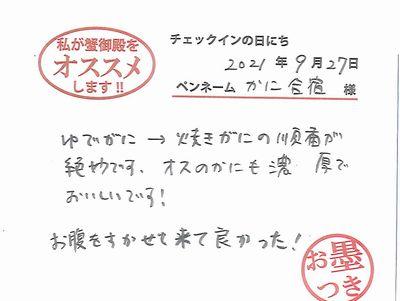 私が蟹御殿を
オススメ
します!!
チェックインの日にち
2021年9月27日
ペンネーム かに合宿 様
ゆでがに → 焼きがにの順番が
絶妙です、オスのかにも濃厚で
おいしいです!
お腹をすかせて来て良かった!
お墨
つき